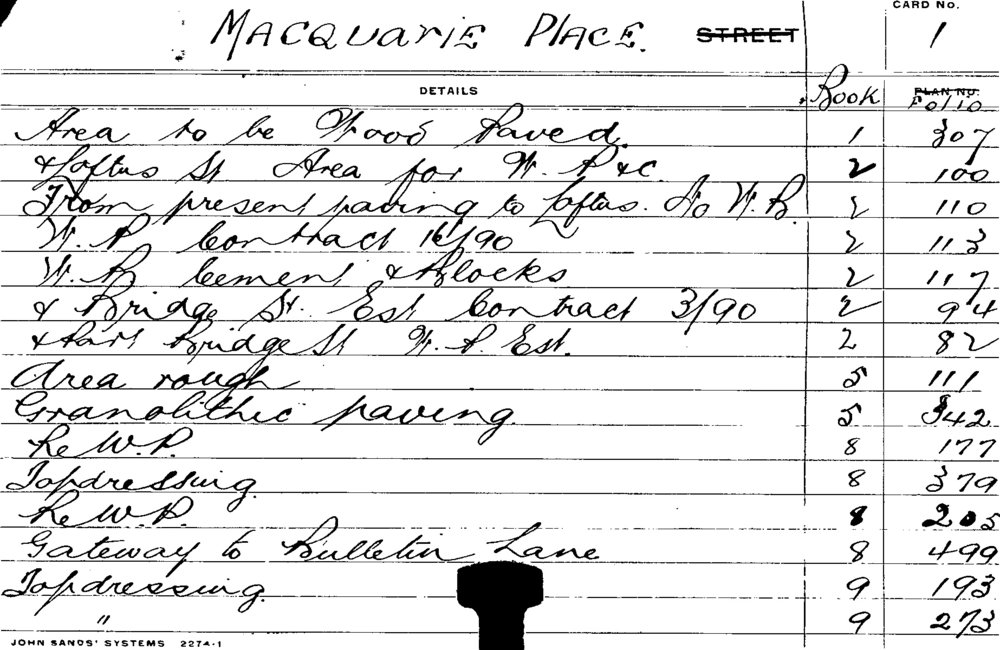 CARD No.
MACQUARIE PLACE. STREET 1
DETAILS Book PLAN NO. Folio
Area to be Wood Paved. 1 307
& Loftus St Area for W. P. & C. 2 100
From present paving to Loftus. No W. B. 2 110
W. P. Contract 16/90 2 113
W. B. Cement & Blocks 2 117
& Bridge St. Est Contract 3/90 2 94
& Part Bridge St W. P. Est. 2 82
Area rough 5 111
Granolithic paving. 5 342
Re W. P. 8 177
Topdressing. 8 379
Re W. P. 8 205
Gateway to Bulletin Lane 8 499
Topdressing. 9 193
" 9 273
JOHN SANDS' SYSTEMS 2274-1